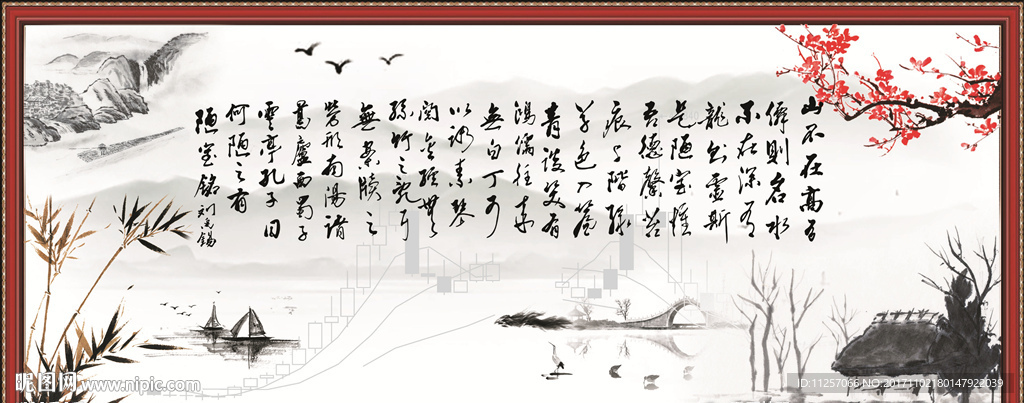 山不在高有
僊則名水
不在深有
龍則靈斯
是陋室惟
吾德馨苔
痕上階綠
草色入簾
青談笑有
鴻儒往来
無白丁可
以調素琴
閱金經無
絲竹之亂耳
無案牘之
勞形南陽諸
葛廬西蜀子
雲亭孔子曰
何陋之有
陋室銘 刘禹锡
昵图网 www.nipic.com
ID:11257066 NO:20171102180147922039